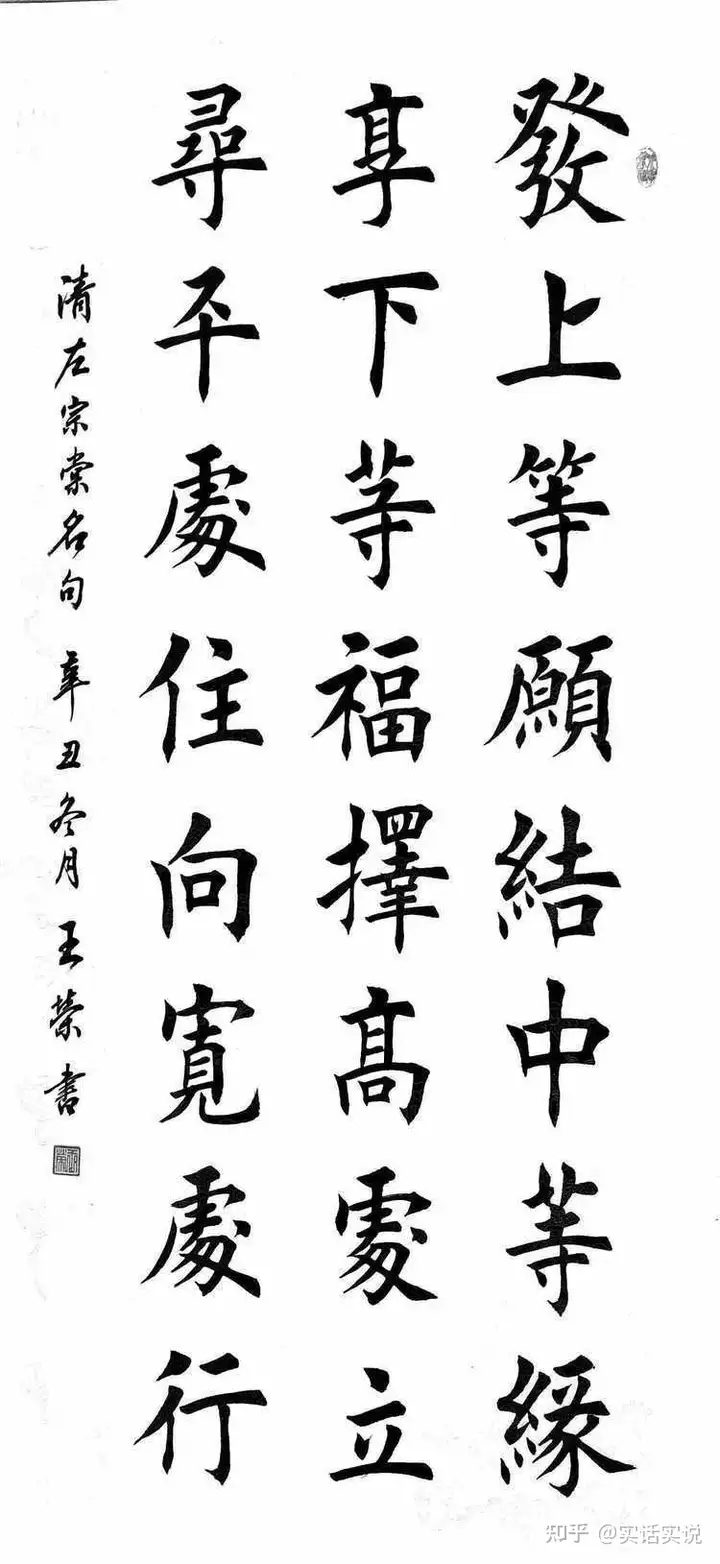 發上等願結中等緣
享下等福擇高處立
尋平處住向寬處行
清左宗棠名句 辛丑冬月 王榮書
知乎 @实话实说